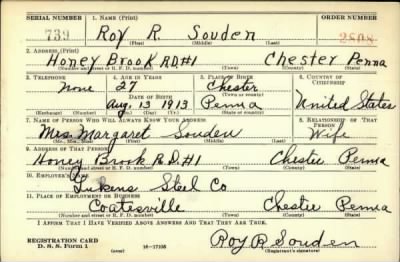 SERIAL NUMBER 1. NAME (Print) ORDER NUMBER
739 Roy R. Souden 2808
(First) (Middle) (Last)
2. ADDRESS (Print)
Honey Brook R.D.#1 Chester Penna
(Number and street or R. F. D. number) (Town) (County) (State)
3. TELEPHONE 4. AGE IN YEARS 5. PLACE OF BIRTH 6. COUNTRY OF CITIZENSHIP
None 27 Chester
DATE OF BIRTH (Town or county)
Aug. 13 1913 Penna United States
(Mo.) (Day) (Yr.) (State or country)
7. NAME OF PERSON WHO WILL ALWAYS KNOW YOUR ADDRESS 8. RELATIONSHIP OF THAT PERSON
Mrs. Margaret Souden Wife
(Mr., Mrs., Miss) (First) (Middle) (Last)
9. ADDRESS OF THAT PERSON
Honey Brook R.D.#1 Chester Penna
(Number and street or R. F. D. number) (Town) (County) (State)
10. EMPLOYER'S NAME
Lukens Steel Co
11. PLACE OF EMPLOYMENT OR BUSINESS
Coatesville Chester Penna
(Number and street or R. F. D. number) (Town) (County) (State)
I AFFIRM THAT I HAVE VERIFIED ABOVE ANSWERS AND THAT THEY ARE TRUE.
REGISTRATION CARD
D. S. S. Form 1 (over) 16-17105 Roy R Souden
(Registrant's signature)